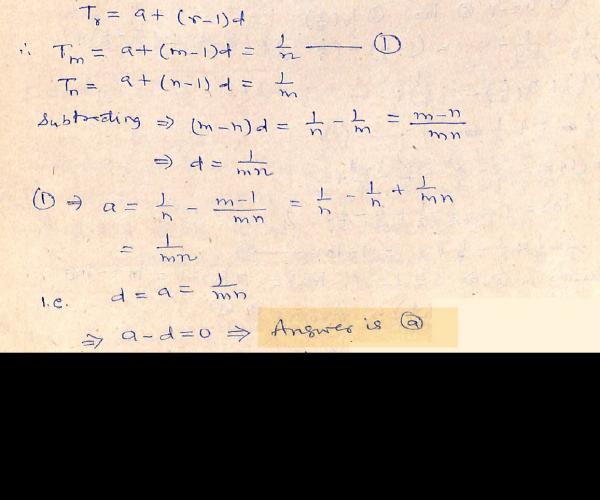 Tᵣ = a + (r-1)d
∴ Tₘ = a + (m-1)d = 1/n —— ①
Tₙ = a + (n-1) d = 1/m
Subtracting ⇒ (m-n)d = 1/n - 1/m = m-n/mn
⇒ d = 1/mn
① ⇒ a = 1/n - m-1/mn = 1/n - 1/n + 1/mn
= 1/mn
i.e. d = a = 1/mn
⇒ a-d=0 ⇒ Answer is ⓐ